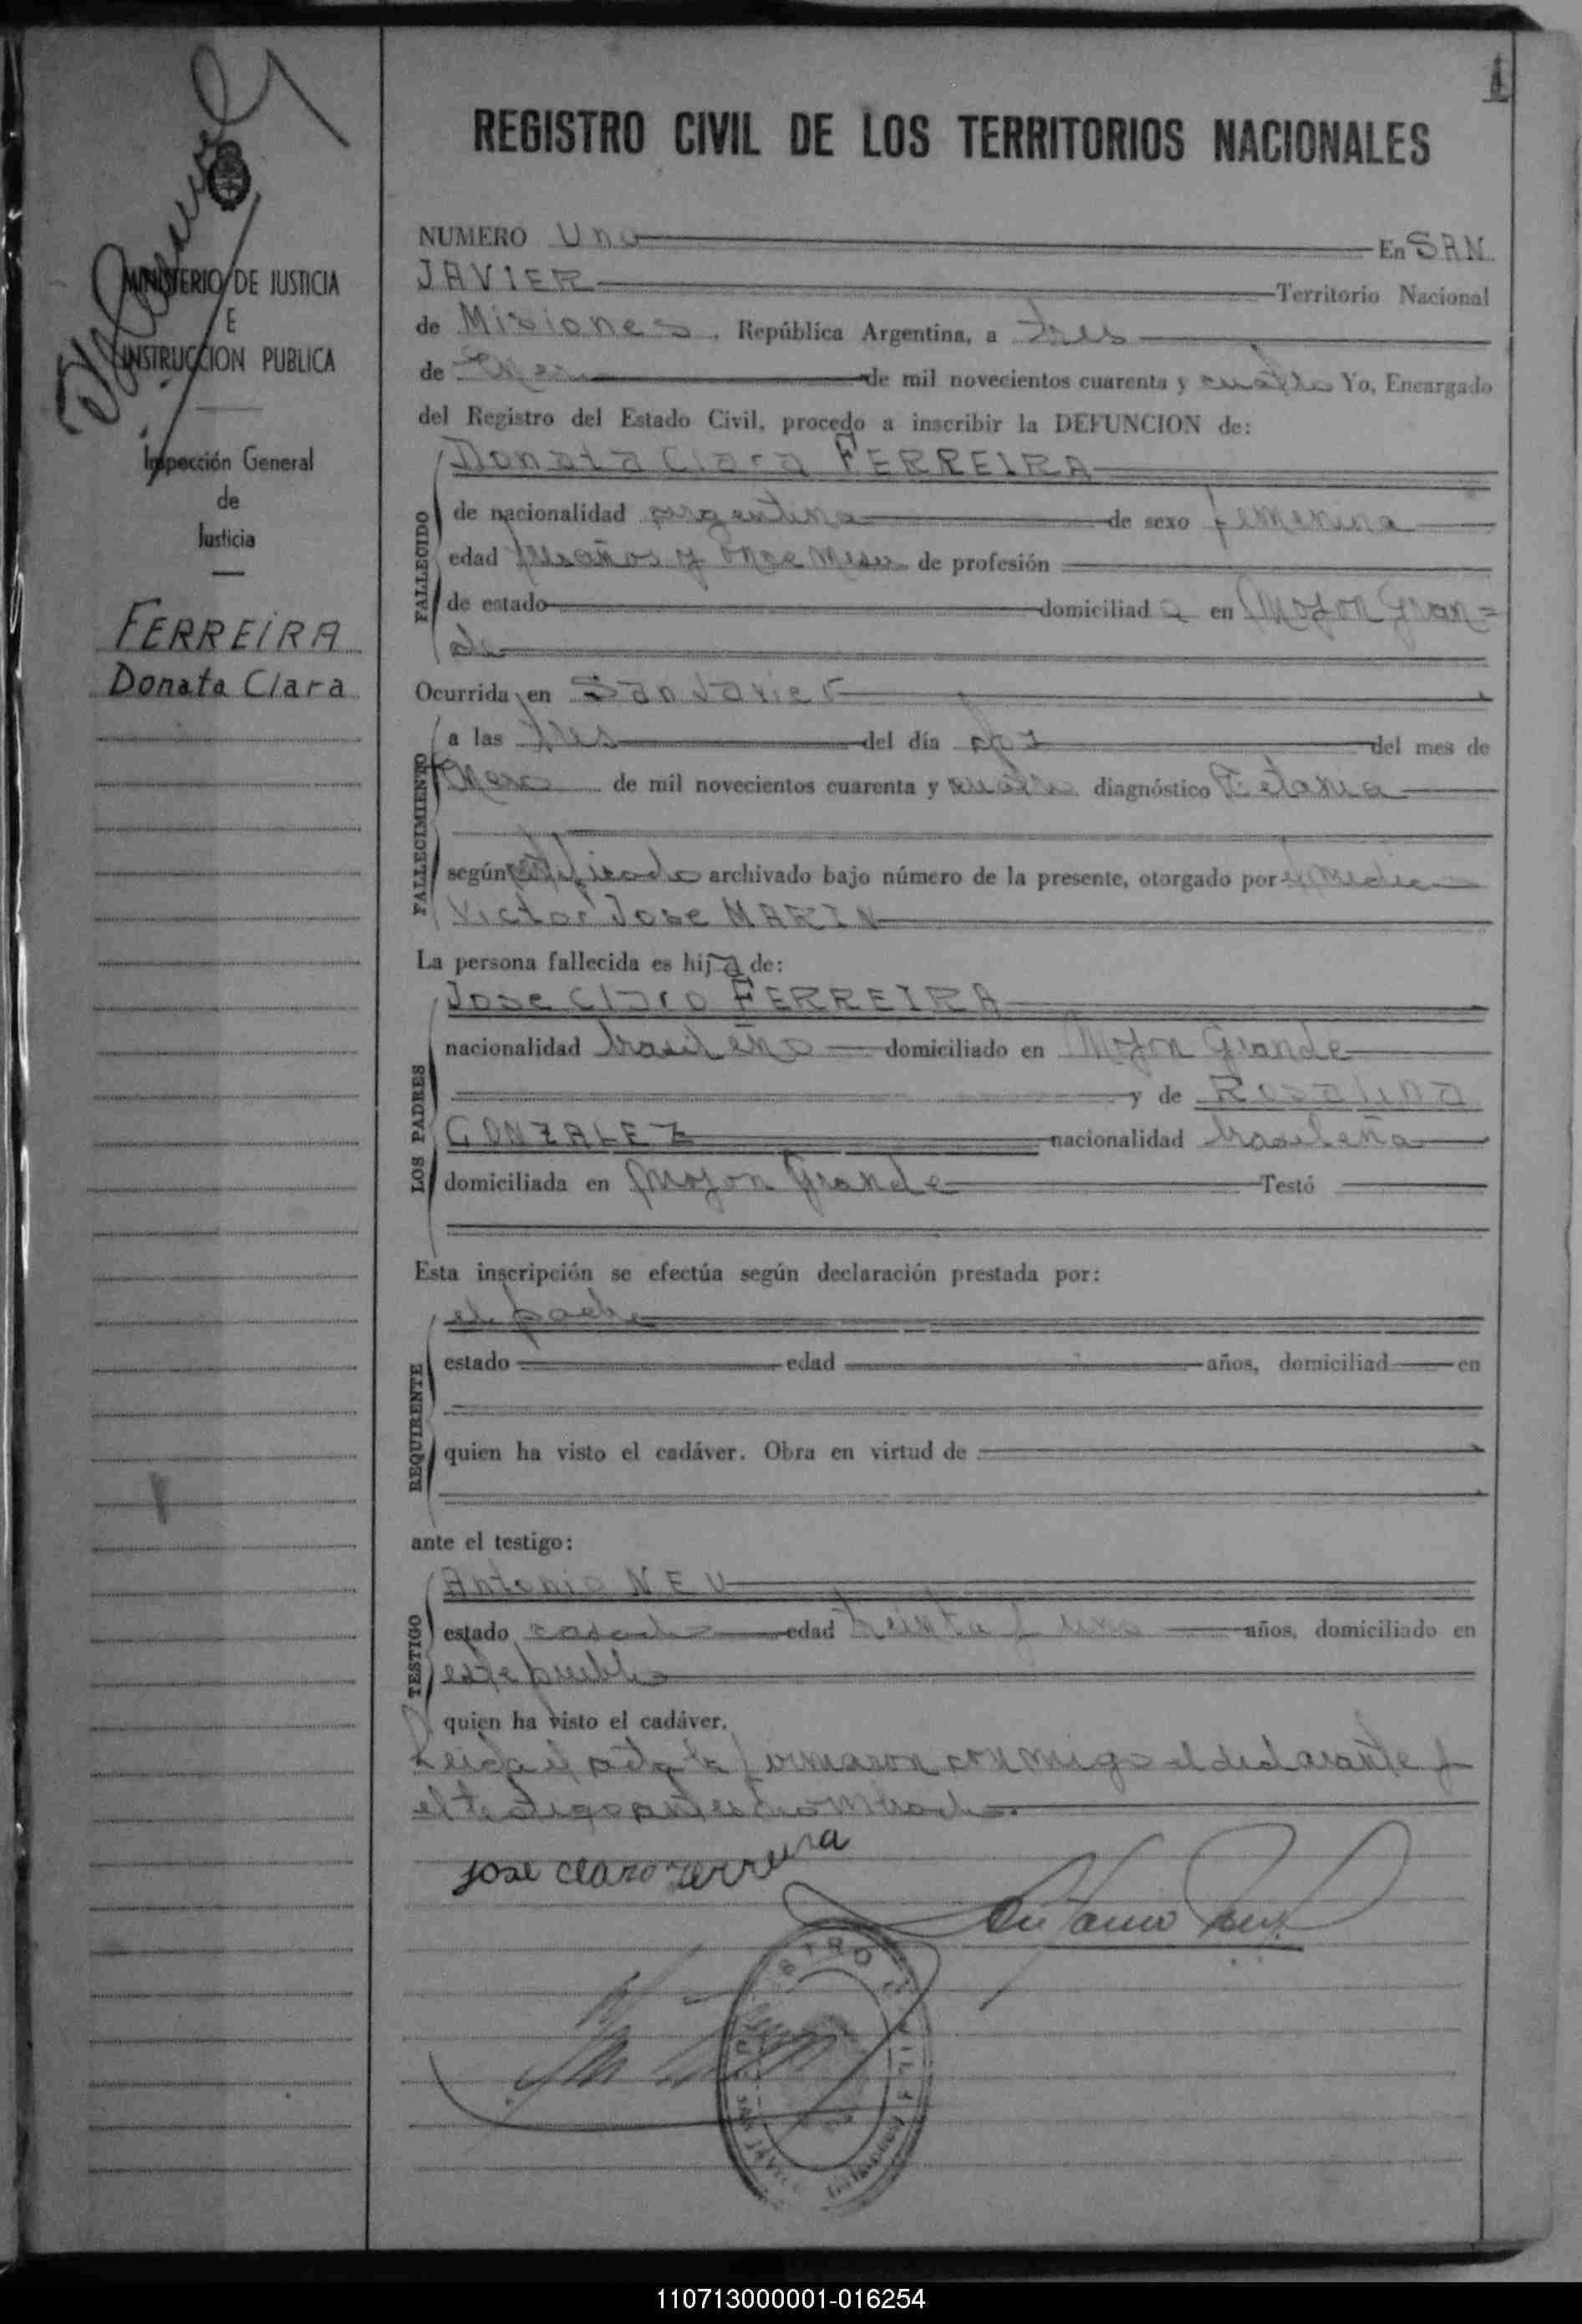 1
REGISTRO CIVIL DE LOS TERRITORIOS NACIONALES
MINISTERIO DE JUSTICIA
E
INSTRUCCION PUBLICA
Inspección General
de
Justicia
FERREIRA
Donata Clara
NUMERO Uno En SAN
JAVIER Territorio Nacional
de Misiones, República Argentina, a tres
de Enero de mil novecientos cuarenta y cuatro Yo, Encargado
del Registro del Estado Civil, procedo a inscribir la DEFUNCION de:
Donata Clara FERREIRA
FALLECIDO
de nacionalidad argentina de sexo femenina
edad tres años y once meses de profesión
de estado domiciliada en Mojon Gran=
de
Ocurrida en San Javier
FALLECIMIENTO
a las tres del día dos del mes de
Enero de mil novecientos cuarenta y cuatro diagnóstico Tetania
según certificado archivado bajo número de la presente, otorgado por el medico
Victor Jose MARIN
La persona fallecida es hija de:
LOS PADRES
Jose Claro FERREIRA
nacionalidad brasileño domiciliado en Mojon Grande
y de Rosalina
GONZALEZ nacionalidad brasileña
domiciliada en Mojon Grande Testó
Esta inscripción se efectúa según declaración prestada por:
REQUIRENTE
el padre
estado edad años, domiciliad en
quien ha visto el cadáver. Obra en virtud de
ante el testigo:
TESTIGO
Antonio NEU
estado casado edad treinta y uno años, domiciliado en
este pueblo
quien ha visto el cadáver.
Leida el acta la firmaron conmigo el declarante y
el testigo antes nombrado.
jose claro ferreira
Antonio Neu
SAN JAVIER
110713000001-016254